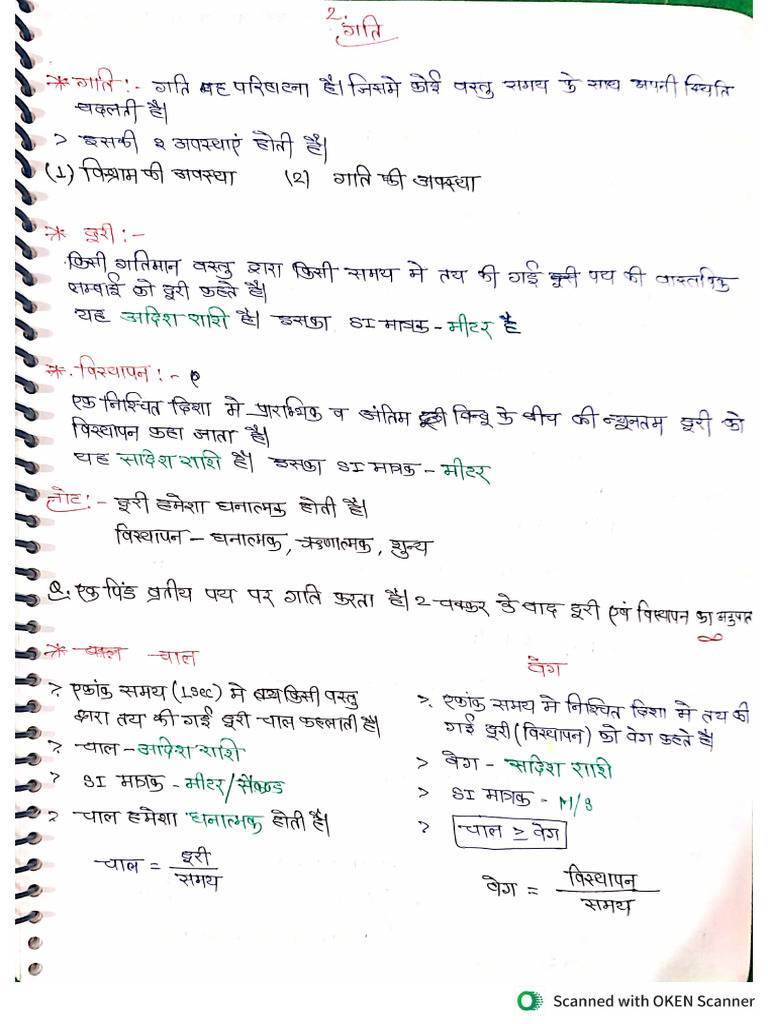 2. गति
* गति :- गति वह परिघटना है। जिसमे कोई वस्तु समय के साथ अपनी स्थिति
बदलती है।
> इसकी २ अवस्थाएं होती है।
(1) विश्राम की अवस्था (2) गति की अवस्था
* दूरी :-
किसी गतिमान वस्तु द्वारा किसी समय मे तय की गई पथ की वास्तविक
लम्बाई को दूरी कहते है।
यह अदिश राशि है। इसका SI मात्रक - मीटर है
* विस्थापन : -
एक निश्चित दिशा मे प्रारम्भिक व अंतिम बिन्दु के बीच की न्यूनतम दूरी को
विस्थापन कहा जाता है।
यह सदिश राशि है। इसका SI मात्रक - मीटर
नोट :- दूरी हमेशा धनात्मक होती है।
विस्थापन - धनात्मक, ऋणात्मक, शुन्य
Q. एक पिंड व्रतीय पथ पर गति करता है। 2 चक्कर के बाद दूरी एवं विस्थापन का अनुपात
∞
* चाल
> एकांक समय (1sec) मे किसी वस्तु
द्वारा तय की गई दूरी चाल कहलाती है।
> चाल - अदिश राशि
> SI मात्रक - मीटर/सैकण्ड
> चाल हमेशा धनात्मक होती है।
चाल = दूरी
समय
वेग
> एकांक समय मे निश्चित दिशा मे तय की
गई दूरी (विस्थापन) को वेग कहते है।
> वेग - सदिश राशि
> SI मात्रक - M/S
> चाल ≥ वेग
वेग = विस्थापन
समय
Scanned with OKEN Scanner